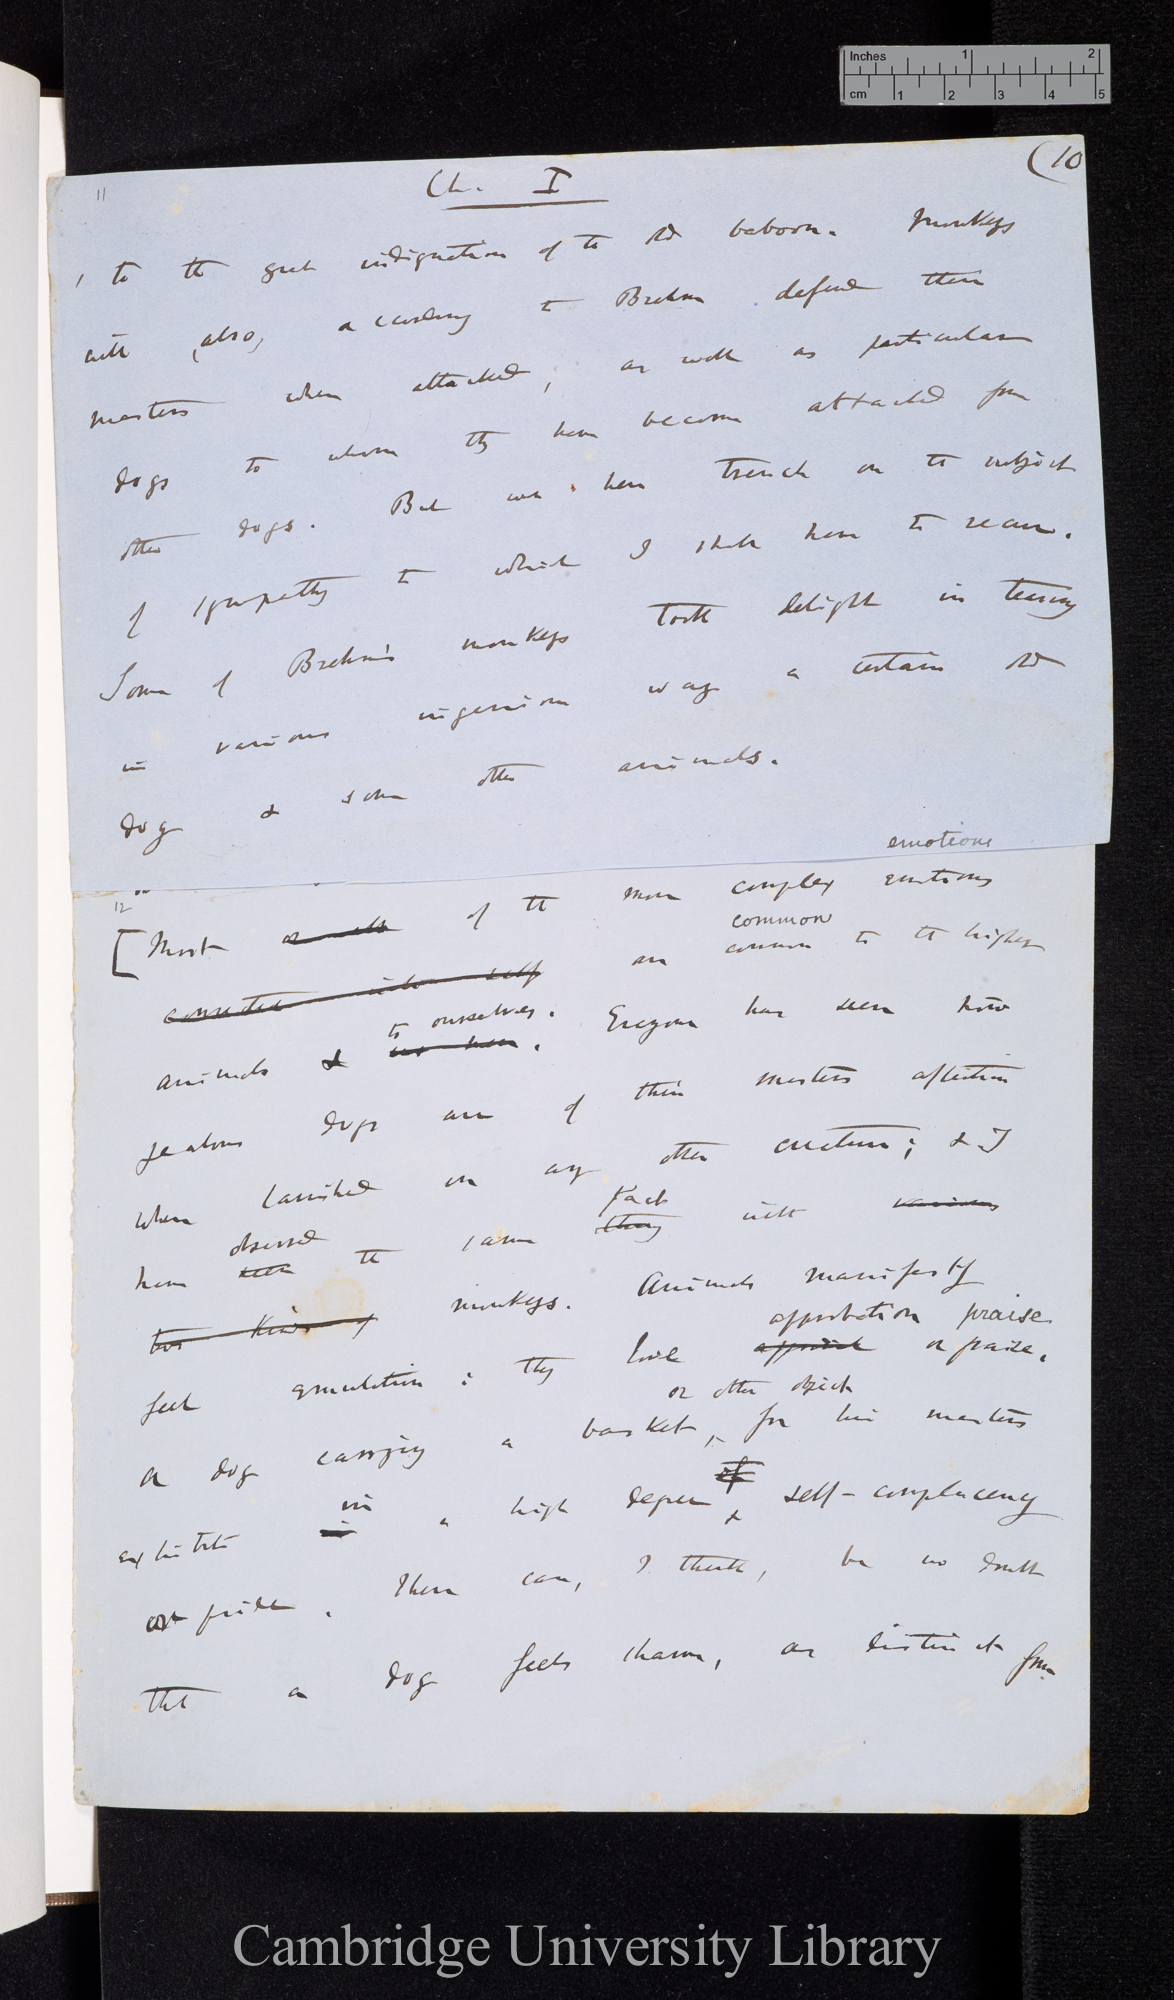 Inches 1 2
cm 1 2 3 4 5
11
Ch. I
(10
to the great indignation of the old baboon. Monkeys
will (also, according to Brehm defend their
masters when attacked, as well as particular
dogs to whom they have become attached from
other dogs. But we here trench on the subject
of sympathy to which I shall have to recur.
Some of Brehm's monkeys took delight in teasing
in various ingenious ways a certain old
dog & some other animals.
emotions
12
[Most of the more complex emotions
common
connected with self are common to the higher
to ourselves.
animals & Everyone has seen how
jealous dogs are of their masters affection
when lavished on any other creature; & I
observed fact
have seen the same thing with various
two kinds of monkeys. Animals manifestly
approbation praise
feel emulation: they love or praise.
or other object
A dog carrying a basket, for his masters
in of
exhibits in a high degree & self-complacency
or pride. There can, I think, be no doubt
that a dog feels shame, as distinct from
Cambridge University Library